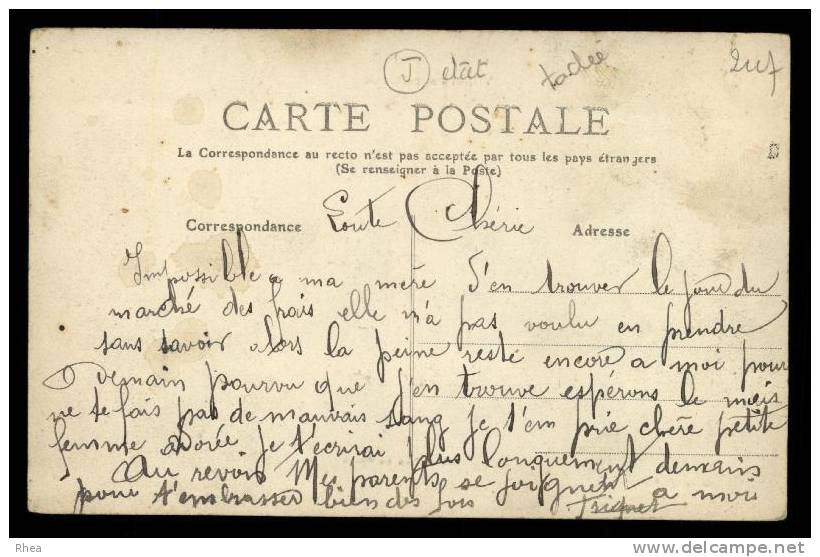 J état tachée
CARTE POSTALE
La Correspondance au recto n'est pas acceptée par tous les pays étrangers
(Se renseigner à la Poste)
Correspondance Adresse
Loute Chérie
Impossible a ma mère d'en trouver le jour du
marché des frais elle m'a pas voulu en prendre
sans savoir alors la peine reste encore a moi pour
Demain pourvu que j'en trouve espérons le mais
ne te fais pas de mauvais sang je t'em prie chère petite
femme adorée je t'écrirai plus longuement demain
Au revoir Mes parents se joignent a moi
pour t'embrasser bien des fois
Rhea
http://www.delcampe.net